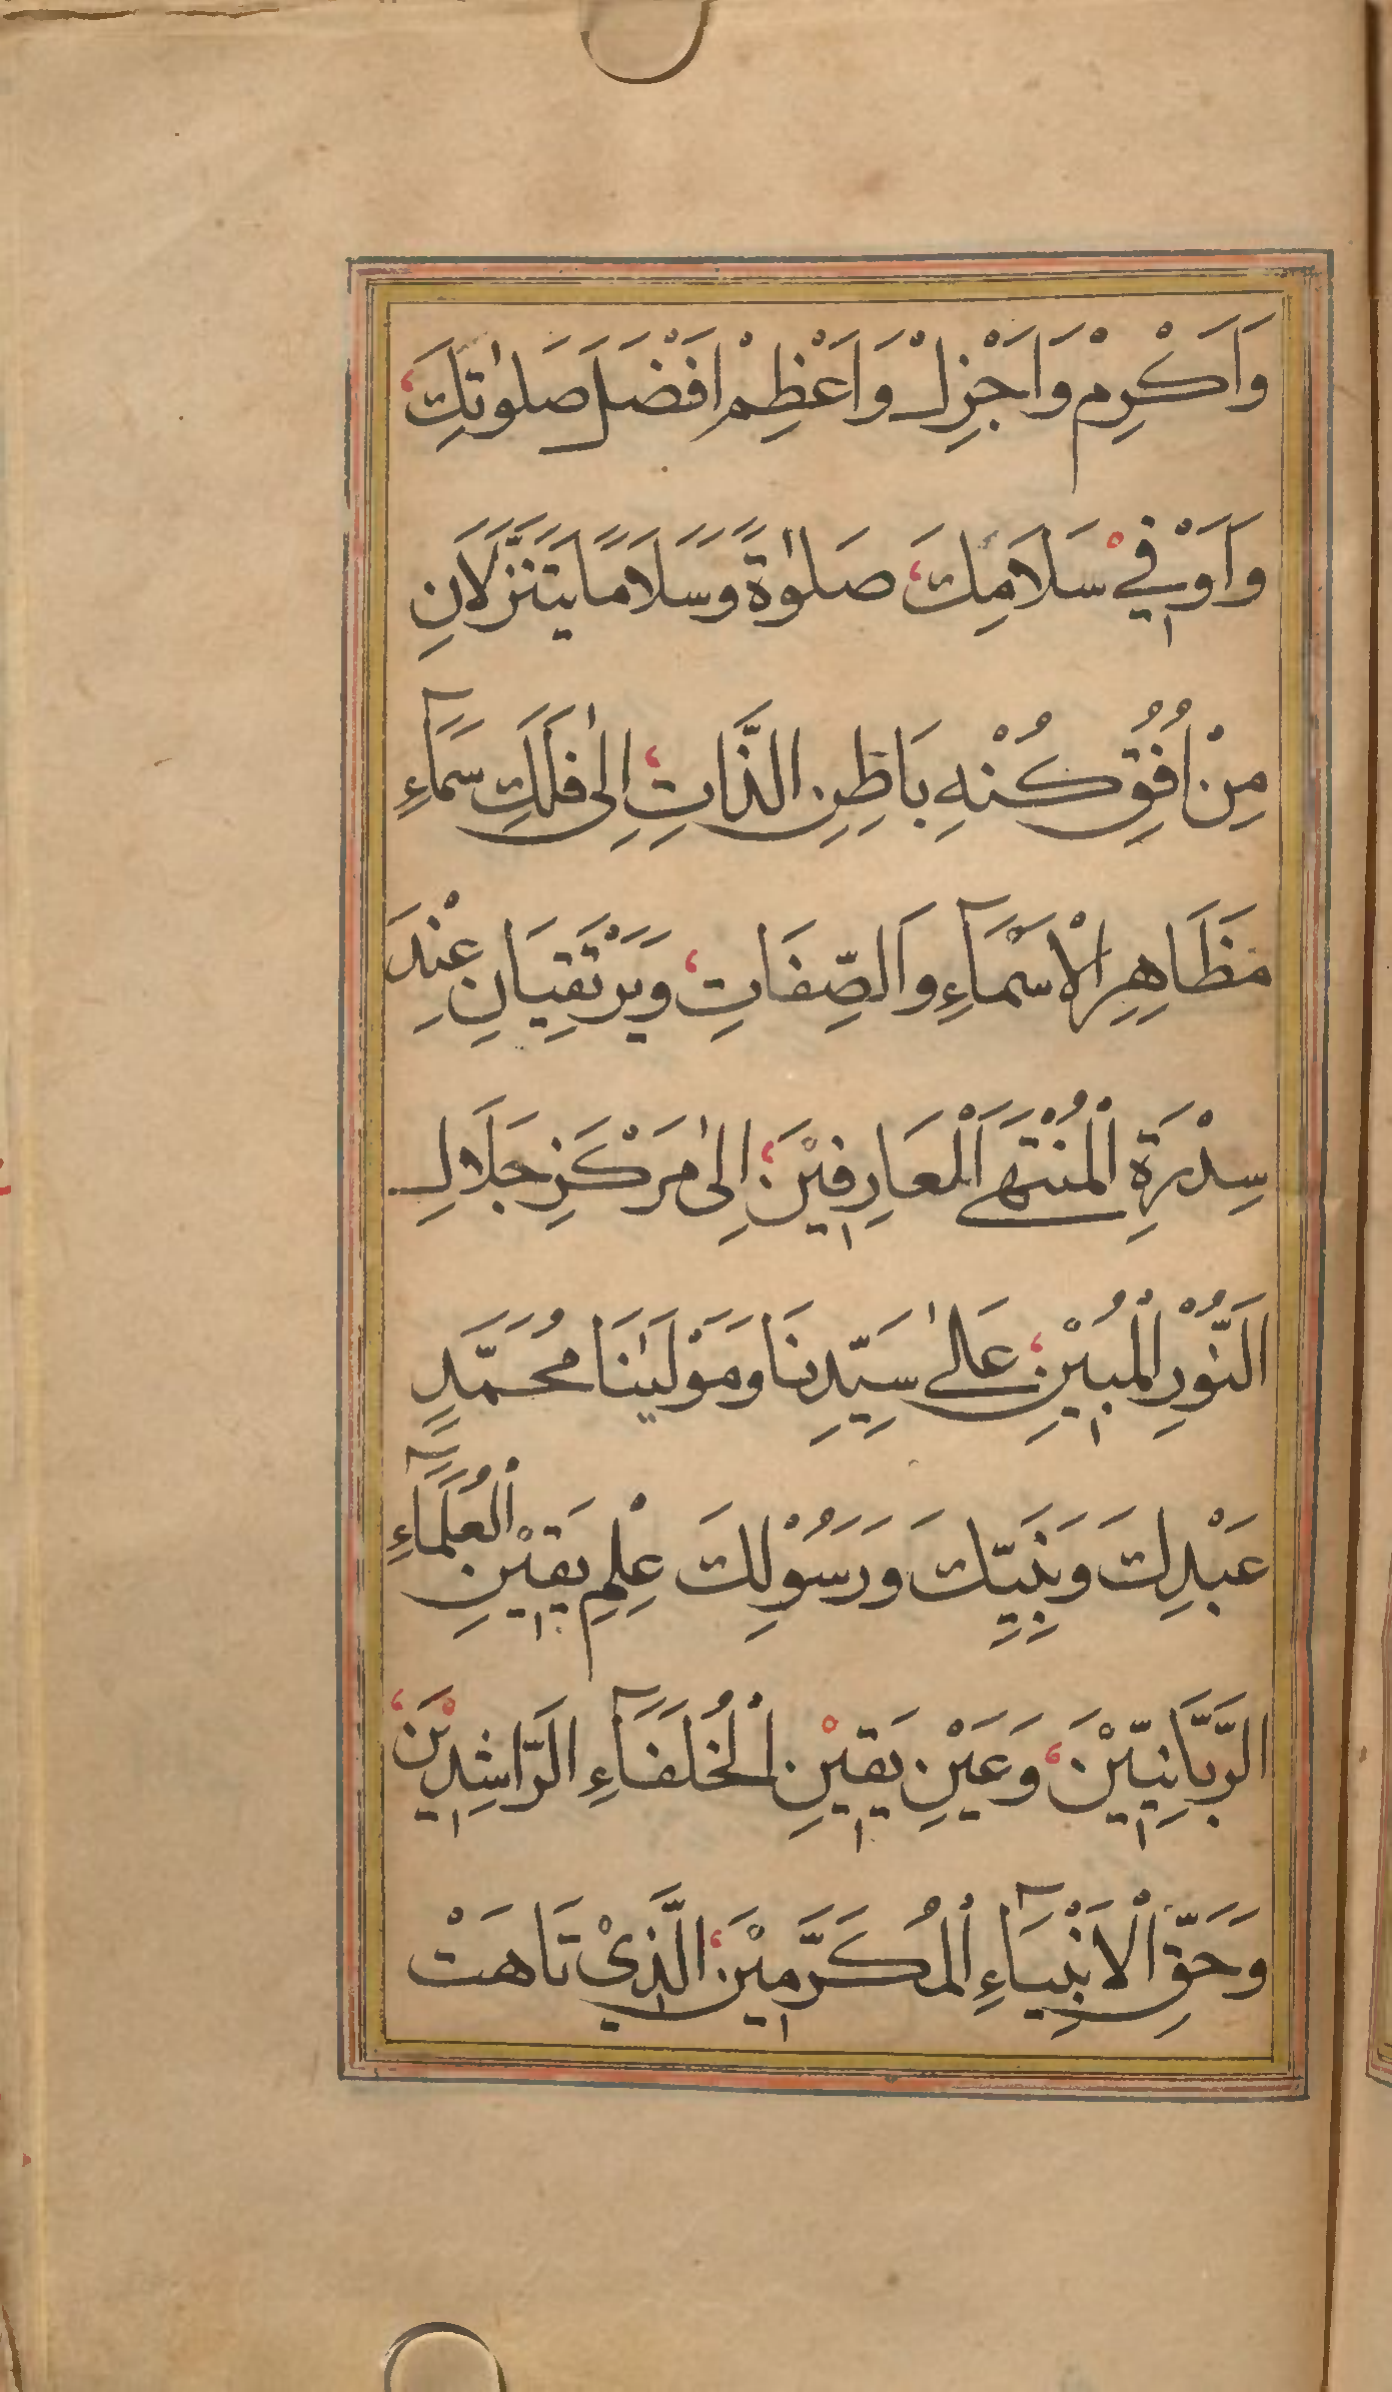 وَاَكْرِمْ وَاَجْزِلْ وَاَعْظِمْ اَفْضَلَ صَلٰوتِكَ،
وَاَوْفِيْ سَلَامِكَ، صَلٰوةً وَسَلَامًا يَتَنَزَّلَانِ
مِنْ اُفُقِ كُنْهِ بَاطِنِ الذَّاتِ، اِلٰى فَلَكِ سَمَآءِ
مَظَاهِرِ الْاَسْمَآءِ وَالصِّفَاتِ، وَيَرْتَقِيَانِ عِنْدَ
سِدْرَةِ الْمُنْتَهَى الْعَارِفِيْنَ، اِلٰى مَرْكَزِ جَلَالِ
النُّوْرِ الْمُبِيْنِ، عَلٰى سَيِّدِنَا وَمَوْلٰينَا مُحَمَّدٍ
عَبْدِكَ وَنَبِيِّكَ وَرَسُوْلِكَ عِلْمِ يَقِيْنِ الْعُلَمَآءِ
الرَّبَّانِيِّيْنَ، وَعَيْنِ يَقِيْنِ الْخُلَفَآءِ الرَّاشِدِيْنَ،
وَحَقِّ الْاَنْبِيَآءِ الْمُكَرَّمِيْنَ، الَّذِيْ تَاهَتْ